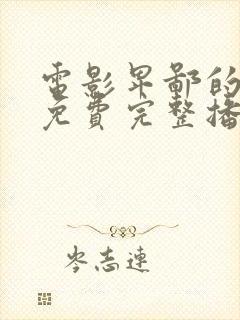 電影卑鄙的
免費完整播
岑志連